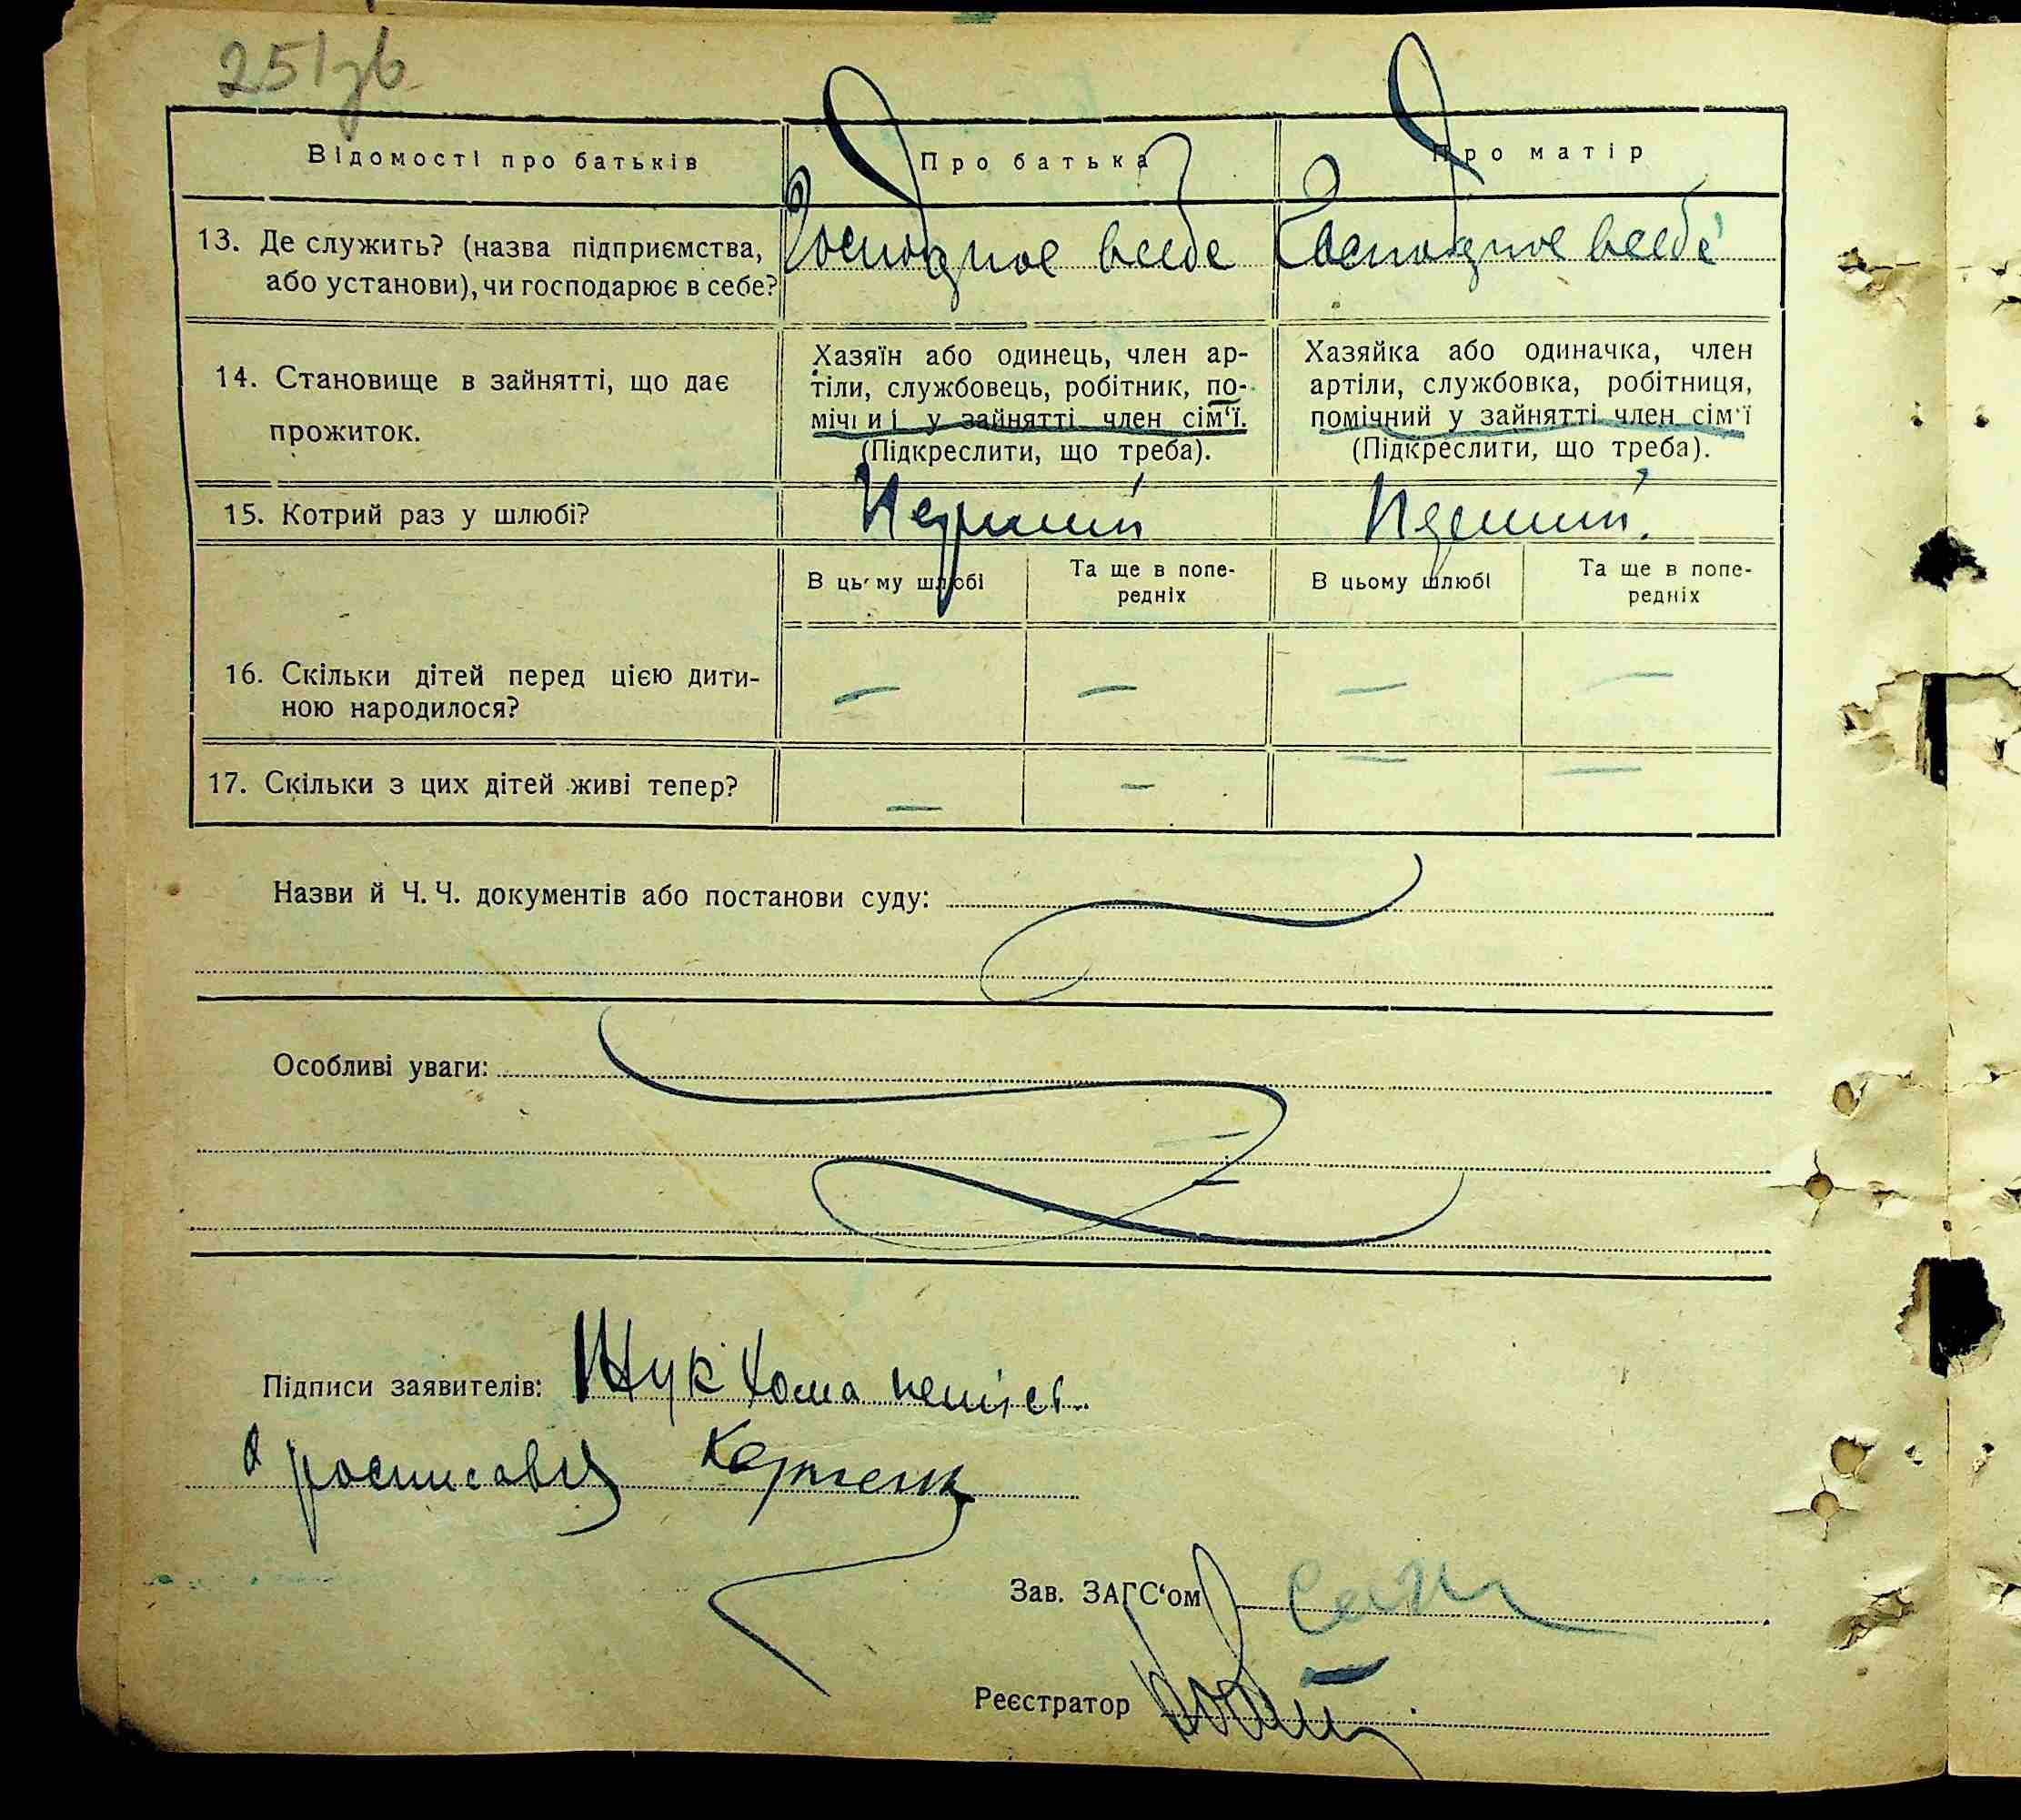 251зв.
Відомості про батьків
Про батька
Про матір
13. Де служить? (назва підприємства,
або установи), чи господарює в себе?
Господрює в себе
Господрює в себе
14. Становище в зайнятті, що дає
прожиток.
Хазяїн або одинець, член ар-
тіли, службовець, робітник, по-
мічний у зайнятті член сім‘ї.
(Підкреслити, що треба).
Хазяйка або одиначка, член
артіли, службовка, робітниця,
помічний у зайнятті член сім‘ї
(Підкреслити, що треба).
15. Котрий раз у шлюбі?
Перший
Перший.
В цьому шлюбі
Та ще в попе-
редніх
В цьому шлюбі
Та ще в попе-
редніх
16. Скільки дітей перед цією дити-
ною народилося?
— — — —
17. Скільки з цих дітей живі тепер?
— — — —
Назви й Ч. Ч. документів або постанови суду:
Особливі уваги:
Підписи заявителів: Щук Хома
Зав. ЗАГС‘ом
Реєстратор